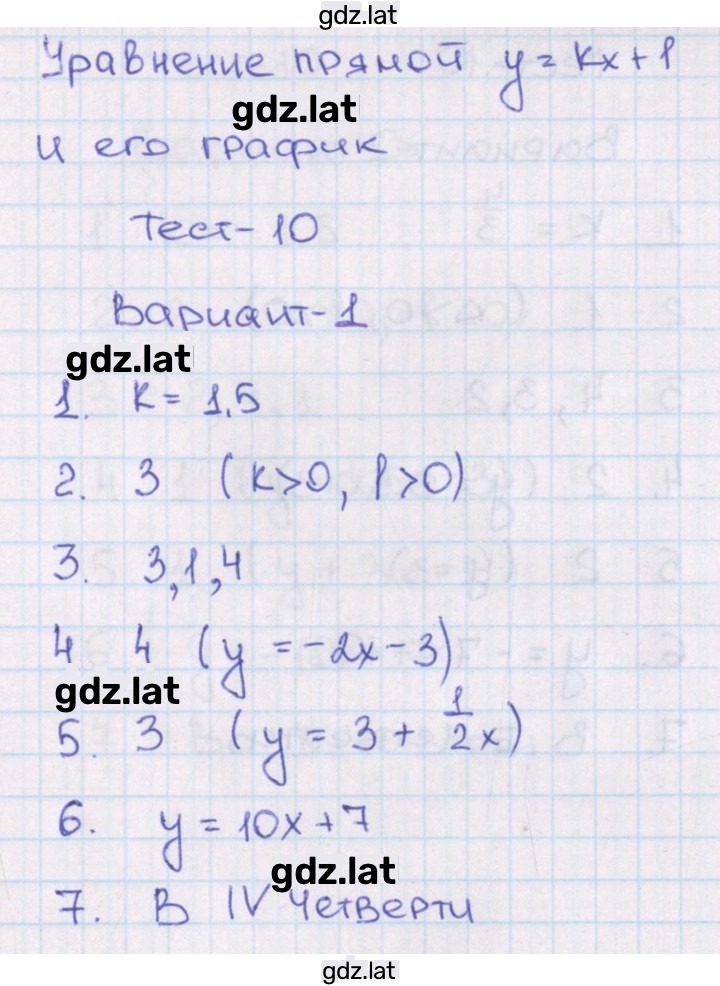 gdz.lat
Уравнение прямой y = kx + l
gdz.lat
и его график
Тест-10
Вариант-1
gdz.lat
1. k = 1.5
2. 3 (k>0, l>0)
3. 3,1,4
4 4 (y = -2x - 3)
gdz.lat
5. 3 (y = 3 + 1/2 x)
6. y = 10x + 7
gdz.lat
7. В IV четверти
gdz.lat